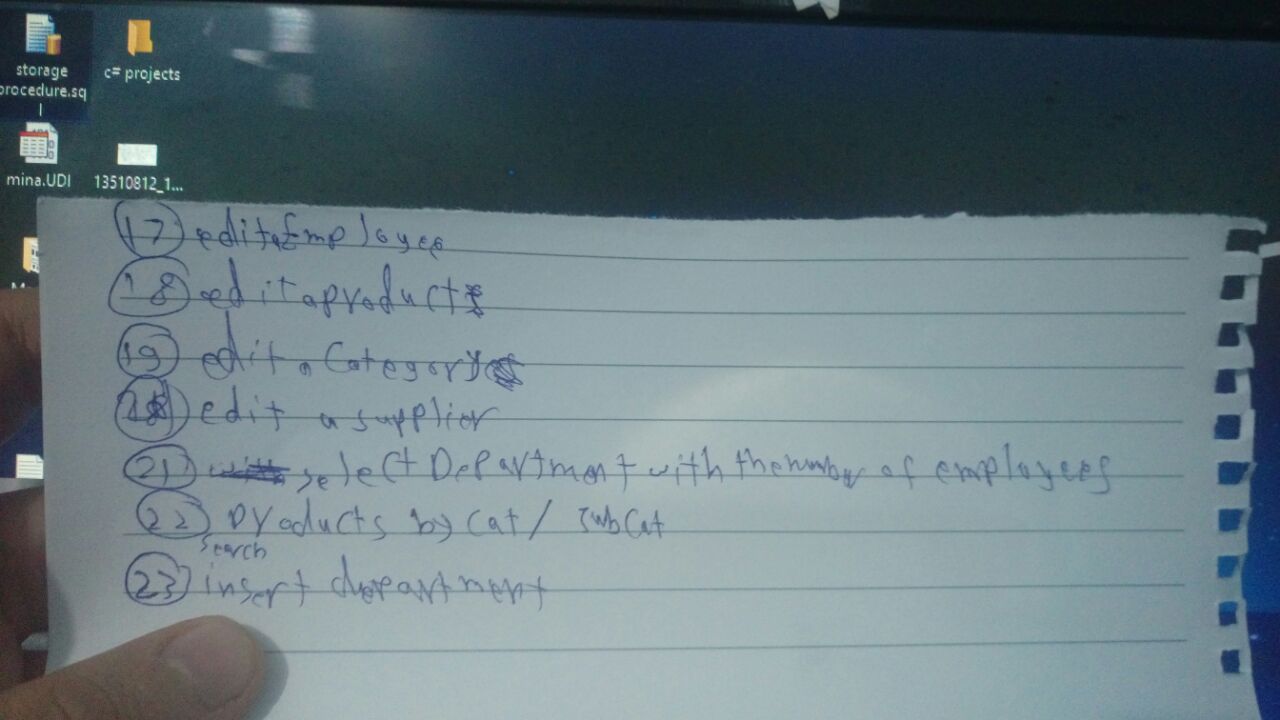 storage
procedure.sq
l
c# projects
mina.UDI
13510812_1...
17 edit a Employee
18 edit a product
19 edit a Category
edit a supplier
21 select Department with the number of employees
22 products by cat / subCat
search
23 insert department